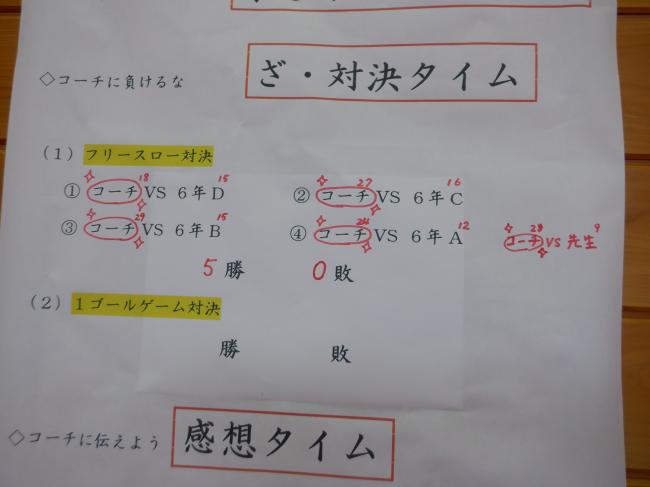 ◇コーチに負けるな
ざ・対決タイム
(1) フリースロー対決
① コーチ 18 VS 6年D 15
② コーチ 27 VS 6年C 16
③ コーチ 29 VS 6年B 15
④ コーチ 24 VS 6年A 12
コーチ 28 VS 先生 9
5勝 0敗
(2) 1ゴールゲーム対決
勝 敗
◇コーチに伝えよう
感想タイム